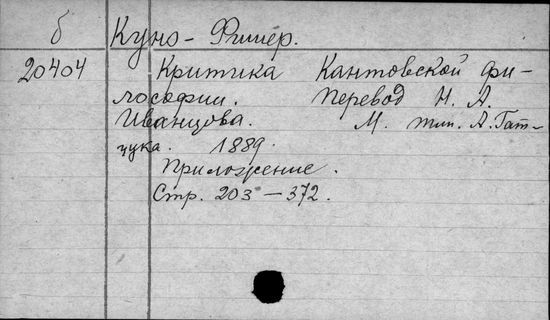 б Куно-Фишер.
20404 Критика Кантовской фи-
лософии. Перевод Н. А.
Иванцова. М. тип. А. Гат-
цука. 1889.
Приложение.
Стр. 203 — 372.